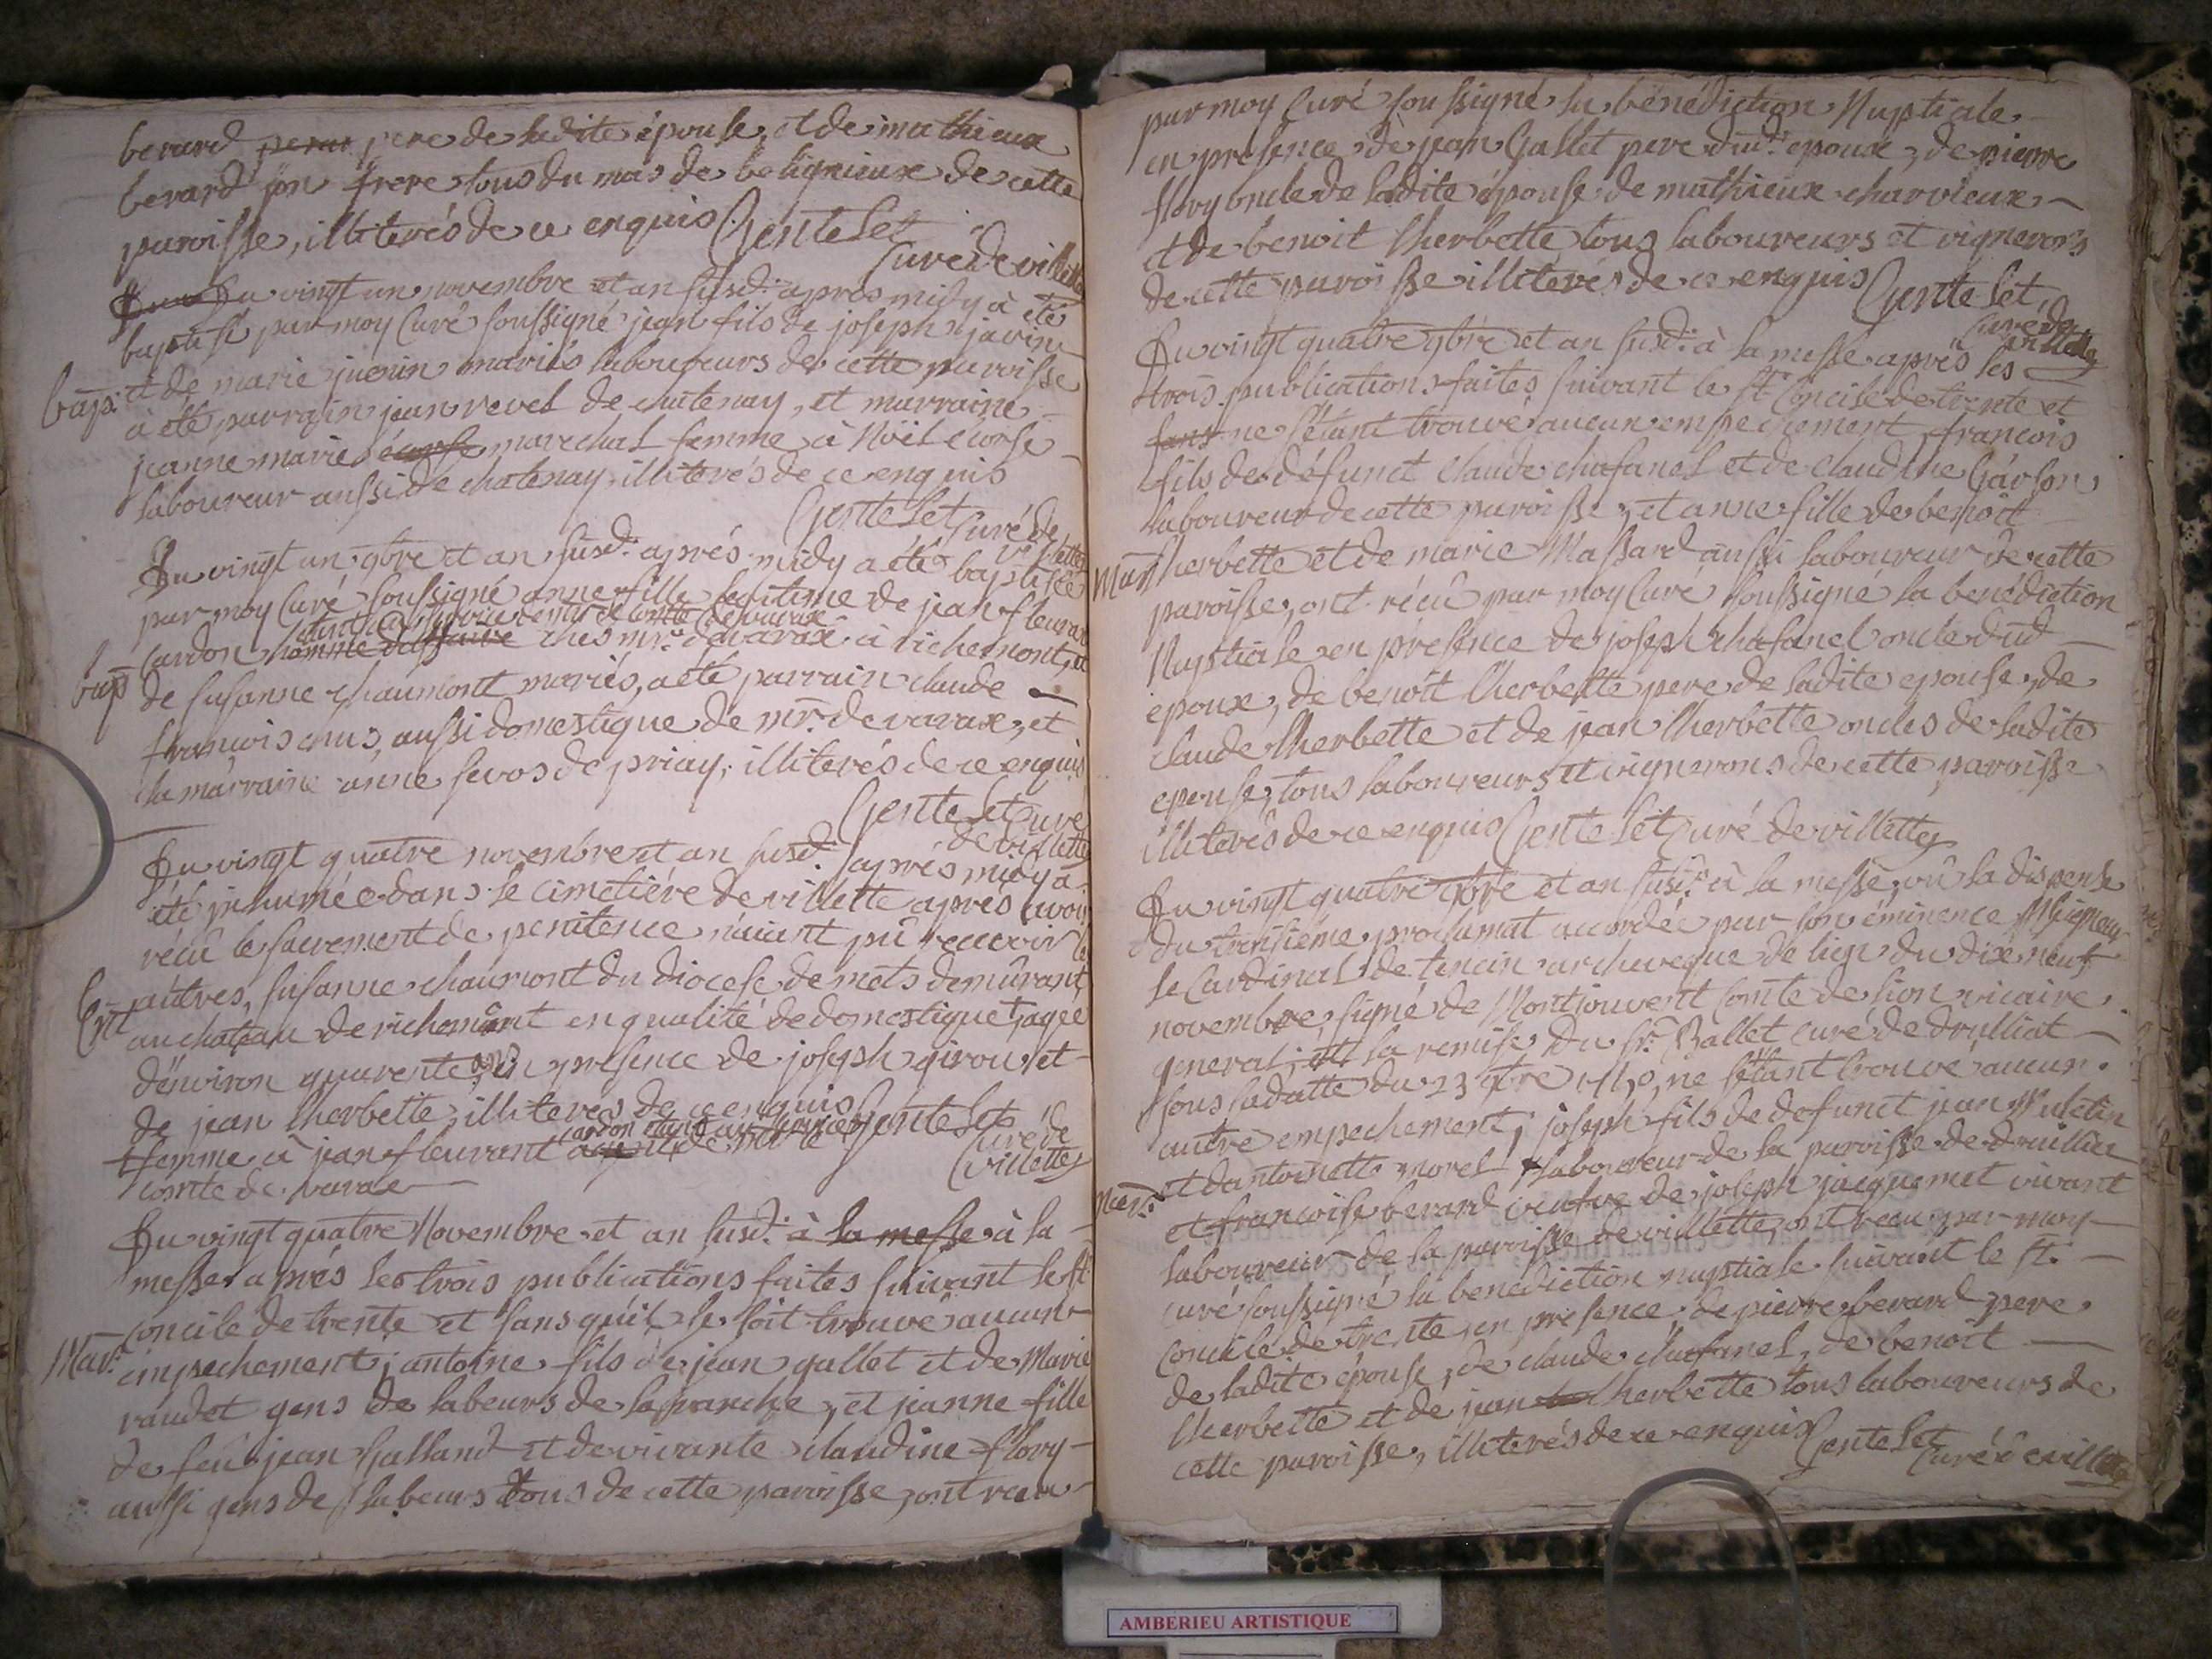 berard perur pere de ladite épouse, et de mathieux
berard son frere tous du mas de belignieux de cette
paroisse, illiterés de ce enquis Gentelet
curé de villette
Du vingt un novembre et an susd: apres midy à été
baptisé par moy Curé soussigné jean fils de joseph javin
bap: et de marie juenin mariés laboureurs de cette paroisse
à été parrain jean revel de chatenay, et marraine
jeanne marie écorse marechal femme à Noël écorse
laboureur aussi de chatenay illiterés de ce enquis
Gentelet Curé de
villette
Du vingt un 9bre et an susd: aprés midy a été baptisée
par moy Curé soussigné anne fille legitime de jean fleurant
étant au service de mr le comte de varax
cardon homme d'affaire ches mr. de varax à richemont, et
bap de susanne chaumont mariés, a été parrain claude
françois cnus, aussi domestique de mr. de varax, et
la marraine anne sevos de priay, illiterés de ce enquis
Gentelet Curé
de villette
Du vingt quatre novembre et an susd: aprés midy a
été inhumée dans le cimetiére de villette aprés avoir
récû le sacrement de penitence n'aiant pû recevoir les
Ent autres, susanne chaumont du diocese de mets demûrant
au chateau de richemont en qualité de domestique, agée
d'environ quarente ans, en presence de joseph girou et
de jean lherbette, illiterés de ce enquis Gentelet
femme à jean fleurant cardon étant au service de mr le Curé de
comte de varax villette
Du vingt quatre Novembre et an susd: à la messe à la
messe aprés les trois publications faites suivant le st:
Concile de trente et sans qu'il se soit trouvé aucun
Mar: empechement; antoine fils de jean gallet et de Marie
raudet gens de labeurs de la ranche, et jeanne fille
de feû jean Galland et de vivante claudine flory
aussi gens de labeurs tous de cette paroisse, ont receu
par moy Curé soussigné la bénédiction Nuptiale
en présence de jean Gallet pere dud: epoux, de pierre
flory oncle de ladite épouse de mathieux charvieux
et de benoit lherbette tous laboureurs et vignerons
de cette paroisse illiterés de ce enquis Gentelet
curé de
villette
Du vingt quatre 9bre et an susd: à la messe aprés les
trois publications faites suivant le st Concile de trente et
sans ne s'étant trouvé aucun empechement, francois
fils de défunct Claude chafanel et de claudine Carson
laboureur de cette paroisse, et anne fille de benoit
Mar lherbette et de marie Massard aussi laboureur de cette
paroisse, ont récû par moy Curé soussigné la bénédiction
Nuptiale en présence de joseph chafanel oncle dud
époux, de benoît lherbette pere de ladite epouse, de
claude lherbette et de jean lherbette oncles de ladite
epouse, tous laboureurs et vignerons de cette paroisse
illiterés de ce enquis Gentelet Curé de villette
Du vingt quatre 9bre et an susd: à la messe, vû la dispense
du troisiéme proclamat accordée par son éminence Mgseigneur
le Cardinal de tencin archeveque de lion du dix neuf
novembre, signé de Montjouvent Comte de lion vicaire
general; et la remise du sr. Ballet curé de druillat
sous la datte du 23 9bre, ne s'étant trouvé aucun
autre empechement; joseph fils de defunct jean Vuletin
et dantoinette morel laboureur de la paroisse de druillat
Mar: et francoise berard veufve de joseph jacquemet vivant
laboureur de la paroisse de villette, ont receu par moy
curé soussigné la benediction nuptiale suivant le st.
Concile de trente, en presence, de pierre berard pere
de ladite épouse, de claude chafanel, de benoit
lherbette et de jean lherbette tous laboureurs de
cette paroisse, illiterés de ce enquis Gentelet
Curé de villette
AMBERIEU ARTISTIQUE